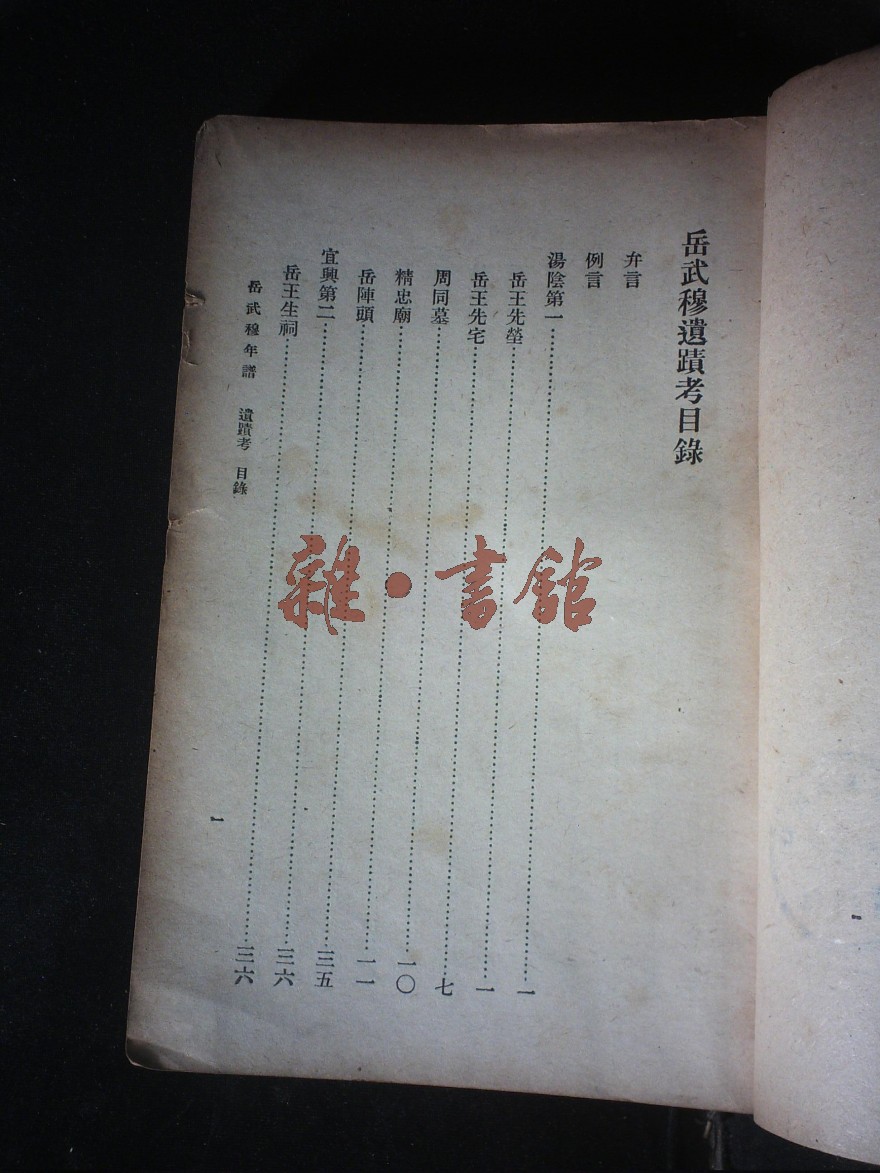 岳武穆遺蹟考目錄
弁言
例言
湯陰第一……一
岳王先塋……一
岳王先宅……七
周同墓……一〇
精忠廟……一一
岳陣頭……三五
宜興第二……三六
岳王生祠……三六
岳武穆年譜 遺蹟考 目錄 一
雜•書館